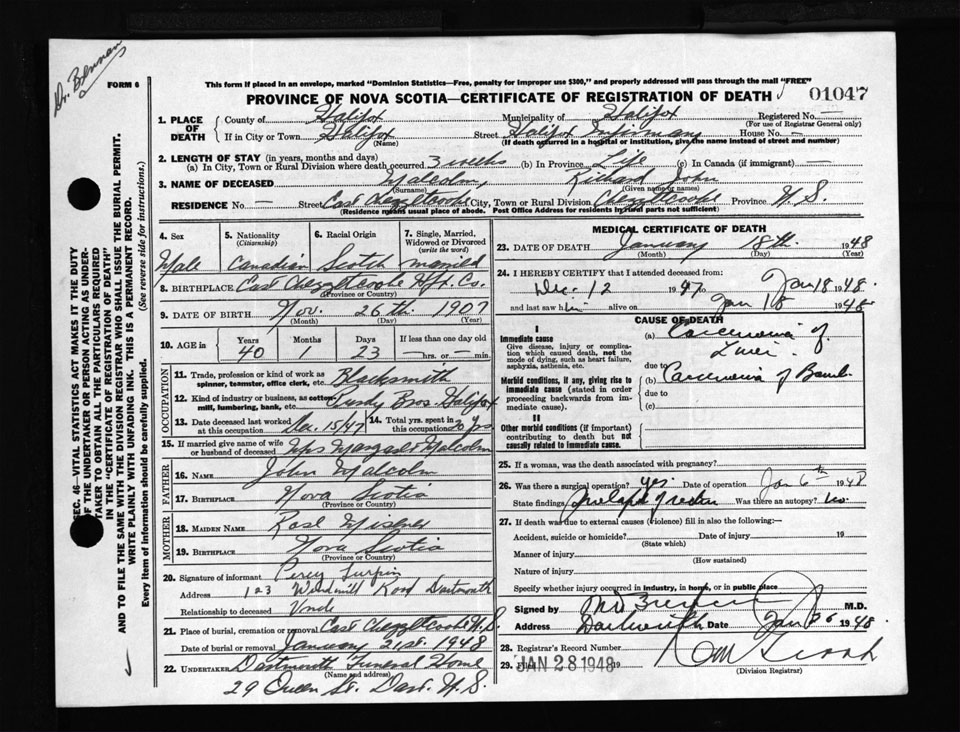 Dr. Brennan
FORM 6
This form if placed in an envelope, marked "Dominion Statistics—Free, penalty for improper use $300," and properly addressed will pass through the mail "FREE"
PROVINCE OF NOVA SCOTIA—CERTIFICATE OF REGISTRATION OF DEATH
01047
1. PLACE OF DEATH County of Halifax Municipality of Halifax Registered No. —
(For use of Registrar General only)
If in City or Town Halifax Street Halifax Infirmary House No. —
(Name) (If death occurred in hospital or institution, give the name instead of street and number)
2. LENGTH OF STAY (in years, months and days)
(a) In City, Town or Rural Division where death occurred 3 weeks (b) In Province Life (c) In Canada (if immigrant) —
3. NAME OF DECEASED Malcolm, Richard John
(Surname) (Given name or names)
RESIDENCE No. — Street East Chezzetcook City, Town or Rural Division Chezzetcook Province N.S.
(Residence means usual place of abode. Post Office Address for residents by rural parts not sufficient)
4. Sex 5. Nationality (Citizenship) 6. Racial Origin 7. Single, Married, Widowed or Divorced (write the word)
Male Canadian Scotch married
8. BIRTHPLACE East Chezzetcooke Hfx. Co.
(Province or Country)
9. DATE OF BIRTH Nov. 26th. 1907
(Month) (Day) (Year)
10. AGE in Years Months Days If less than one day old
40 1 23 —hrs. or —min.
OCCUPATION
11. Trade, profession or kind of work as spinner, teamster, office clerk, etc. Blacksmith
12. Kind of industry or business, as cotton-mill, lumbering, bank, etc. Purdy Bros. Halifax
13. Date deceased last worked at this occupation Dec. 15/47 14. Total yrs. spent in this occupation 20 yrs
15. If married give name of wife or husband of deceased Mrs Margaret Malcolm
FATHER
16. NAME John Malcolm
17. BIRTHPLACE Nova Scotia
(Province or Country)
MOTHER
18. MAIDEN NAME Rose Misener
19. BIRTHPLACE Nova Scotia
(Province or Country)
20. Signature of informant Percy Turpin
Address 123 Windmill Road Dartmouth
Relationship to deceased Uncle
21. Place of burial, cremation or removal East Chezzetcooke N.S.
Date of burial or removal January 21st. 1948
22. UNDERTAKER Dartmouth Funeral Home
(Name and address)
29 Queen St. Dart. N.S.
MEDICAL CERTIFICATE OF DEATH
23. DATE OF DEATH January 18th. 1948
(Month) (Day) (Year)
24. I HEREBY CERTIFY that I attended deceased from:
Dec. 12 1947 Jan 18 1948.
and last saw him alive on Jan 18 1948
CAUSE OF DEATH
I
Give disease, injury or complication which caused death, not the mode of dying, such as heart failure, asphyxia, asthenia, etc.
Immediate cause
(a) Carcenoma of Liver.
due to
Morbid conditions, if any, giving rise to immediate cause (stated in order proceeding backwards from immediate cause).
(b) Carcenoma of
due to
(c)
II
Other morbid conditions (if important) contributing to death but not causally related to immediate cause.
25. If a woman, was the death associated with pregnancy?
26. Was there a surgical operation? yes. Date of operation Jan 6th 1948
State findings of Was there an autopsy? no.
27. If death was due to external causes (violence) fill in also the following:—
Accident, suicide or homicide? Date of injury 19
(State which)
Manner of injury
(How sustained)
Nature of injury
Specify whether injury occurred in industry, in home, or in public place
Signed by M D Brennan M.D.
Address Dartmouth Date Jan 26 1948.
28. Registrar's Record Number
29. Filed JAN 28 1948 19
(Division Registrar)
SEC. 46—VITAL STATISTICS ACT MAKES IT THE DUTY
OF THE UNDERTAKER OR PERSON ACTING AS UNDER-
TAKER TO OBTAIN ALL THE PARTICULARS REQUIRED
IN THE "CERTIFICATE OF REGISTRATION OF DEATH"
AND TO FILE THE SAME WITH THE DIVISION REGISTRAR WHO SHALL ISSUE THE BURIAL PERMIT.
WRITE PLAINLY WITH UNFADING INK. THIS IS A PERMANENT RECORD.
Every item of information should be carefully supplied. (See reverse side for instructions.)